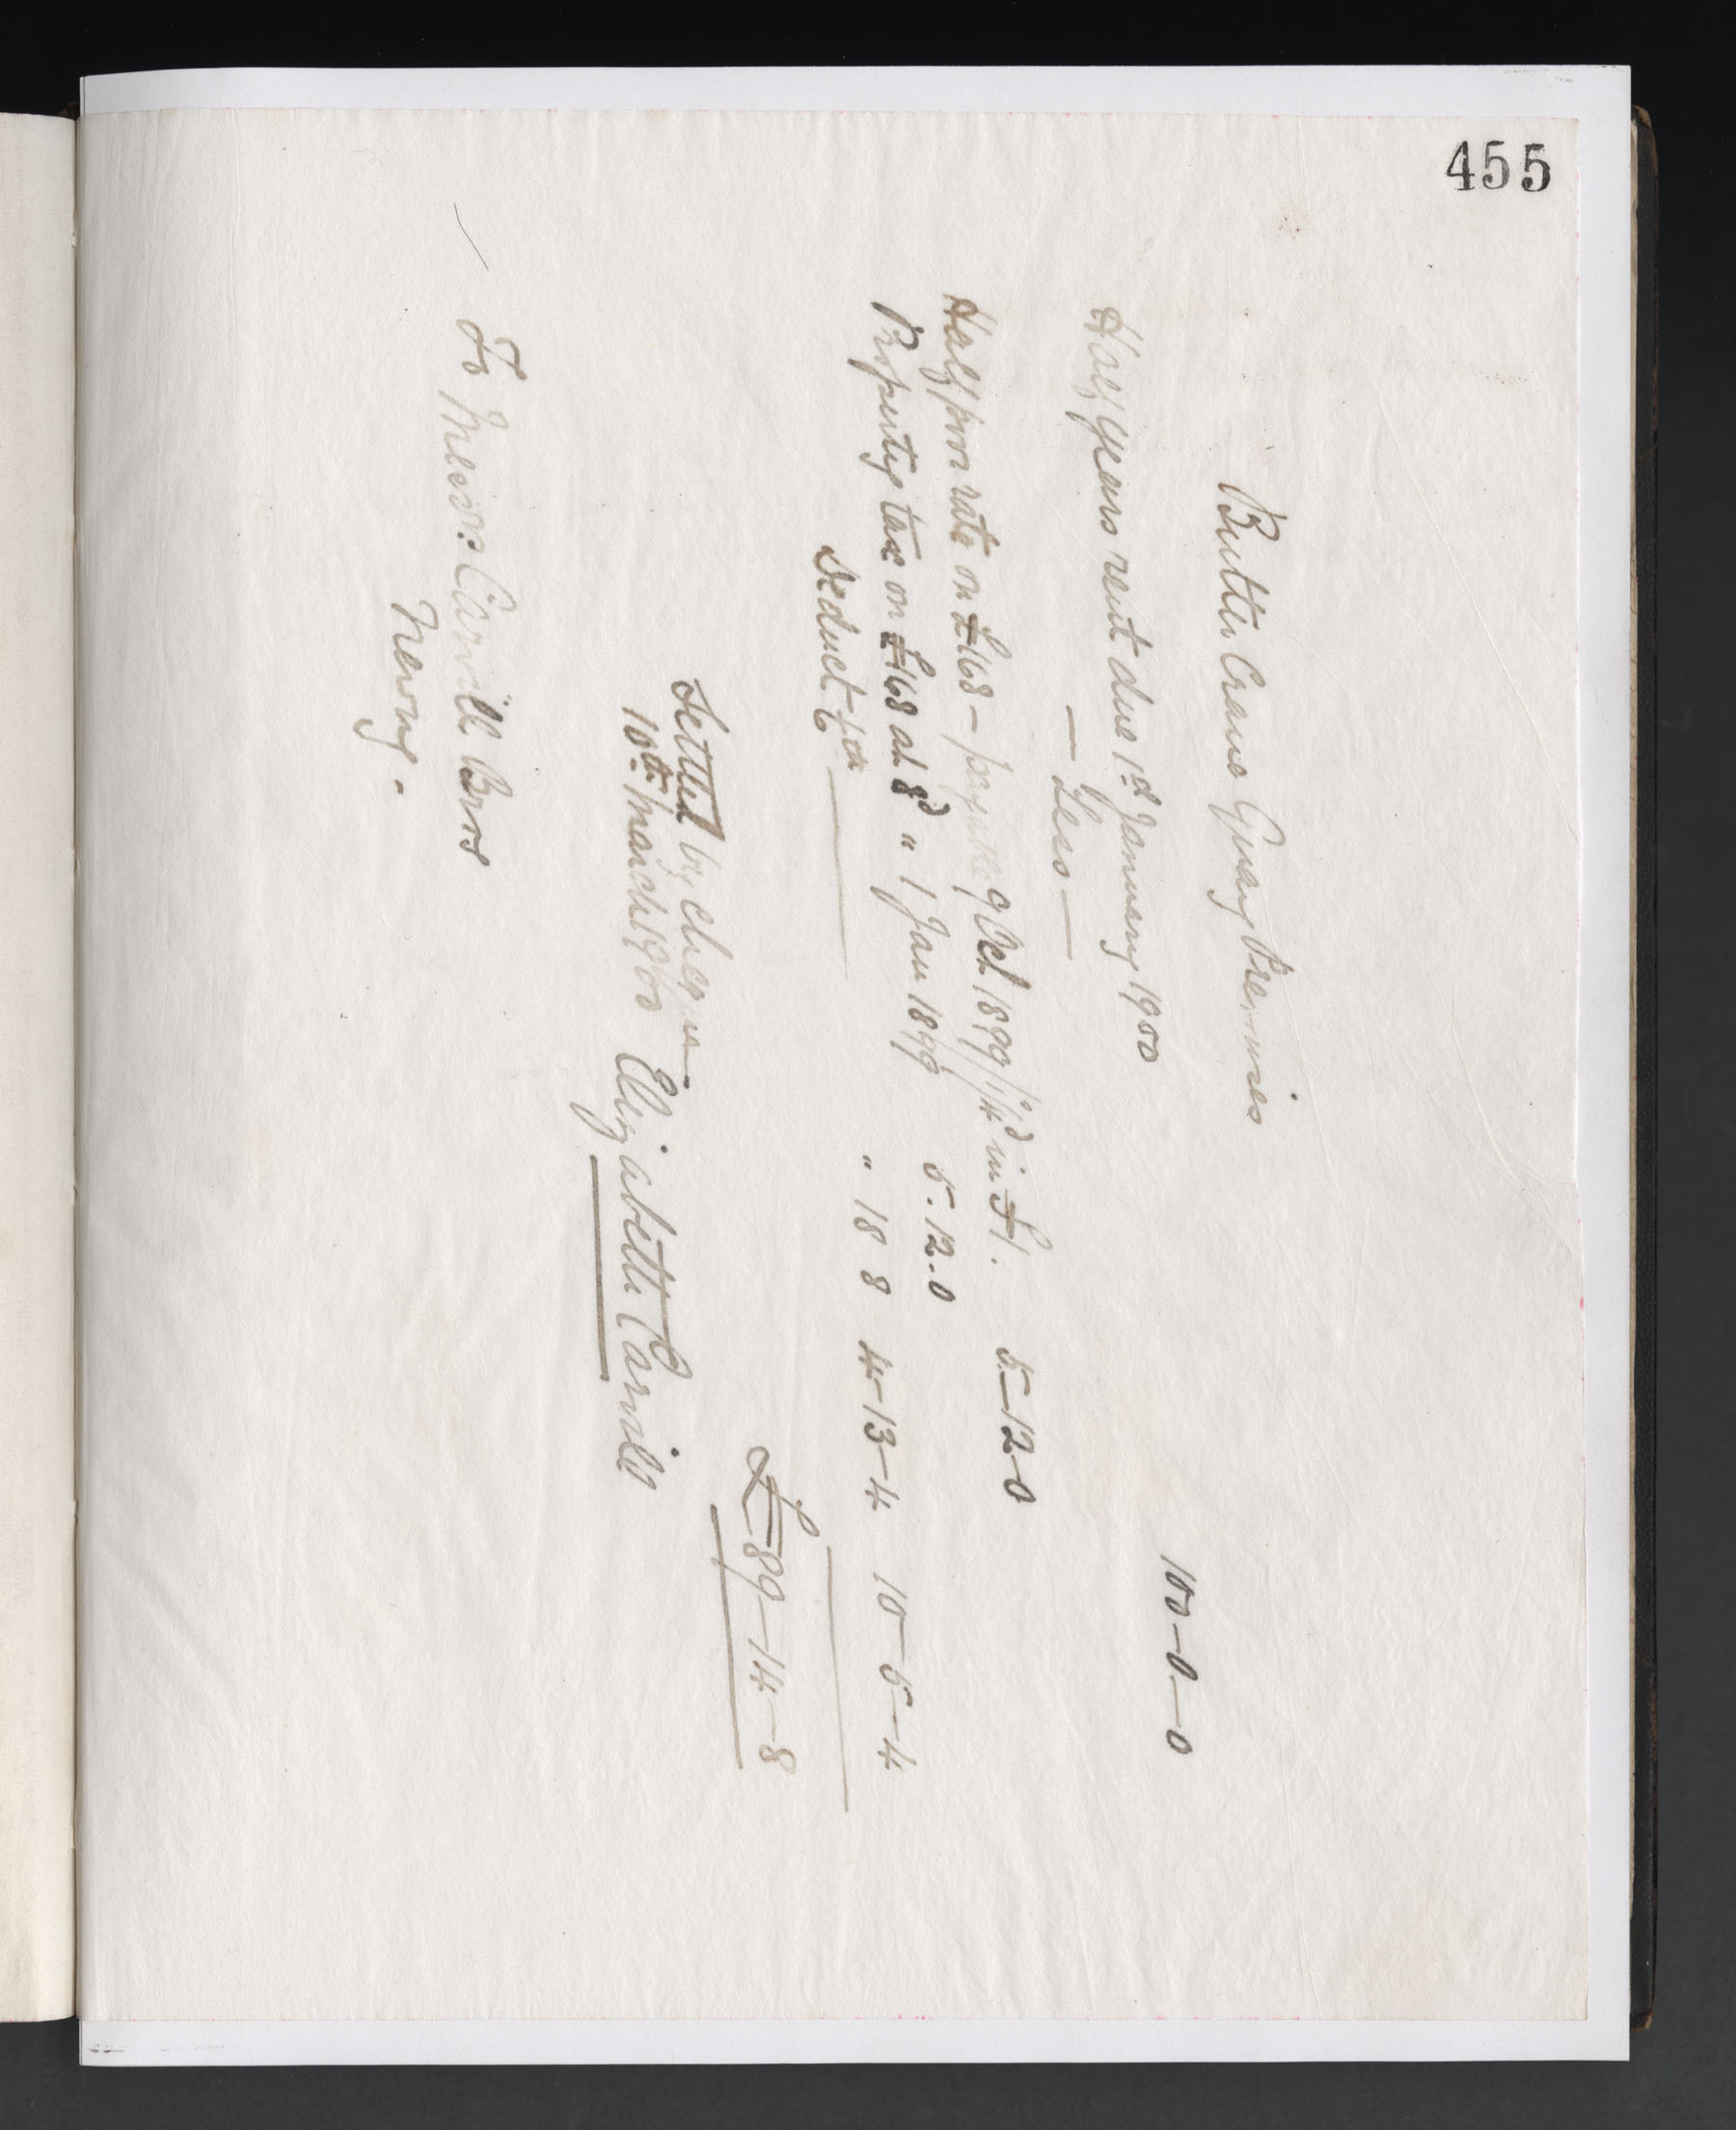 455
Butter Crane Quay Premises
Half years rent due 1st January 1900 100-0-0
— Less —
Half poor rate on £168 - payable 9 Oct 1899 1/4d in £1. 5-12-0
Property tax on £168 at 8d " 1 Jan 1899 5.12.0
Deduct 1/6th " 18 8 4-13-4 10-5-4
£89-14-8
Settled by cheque
10th March 1900 Elizabeth Carvill
To Messrs Carvill Bros
Newry.